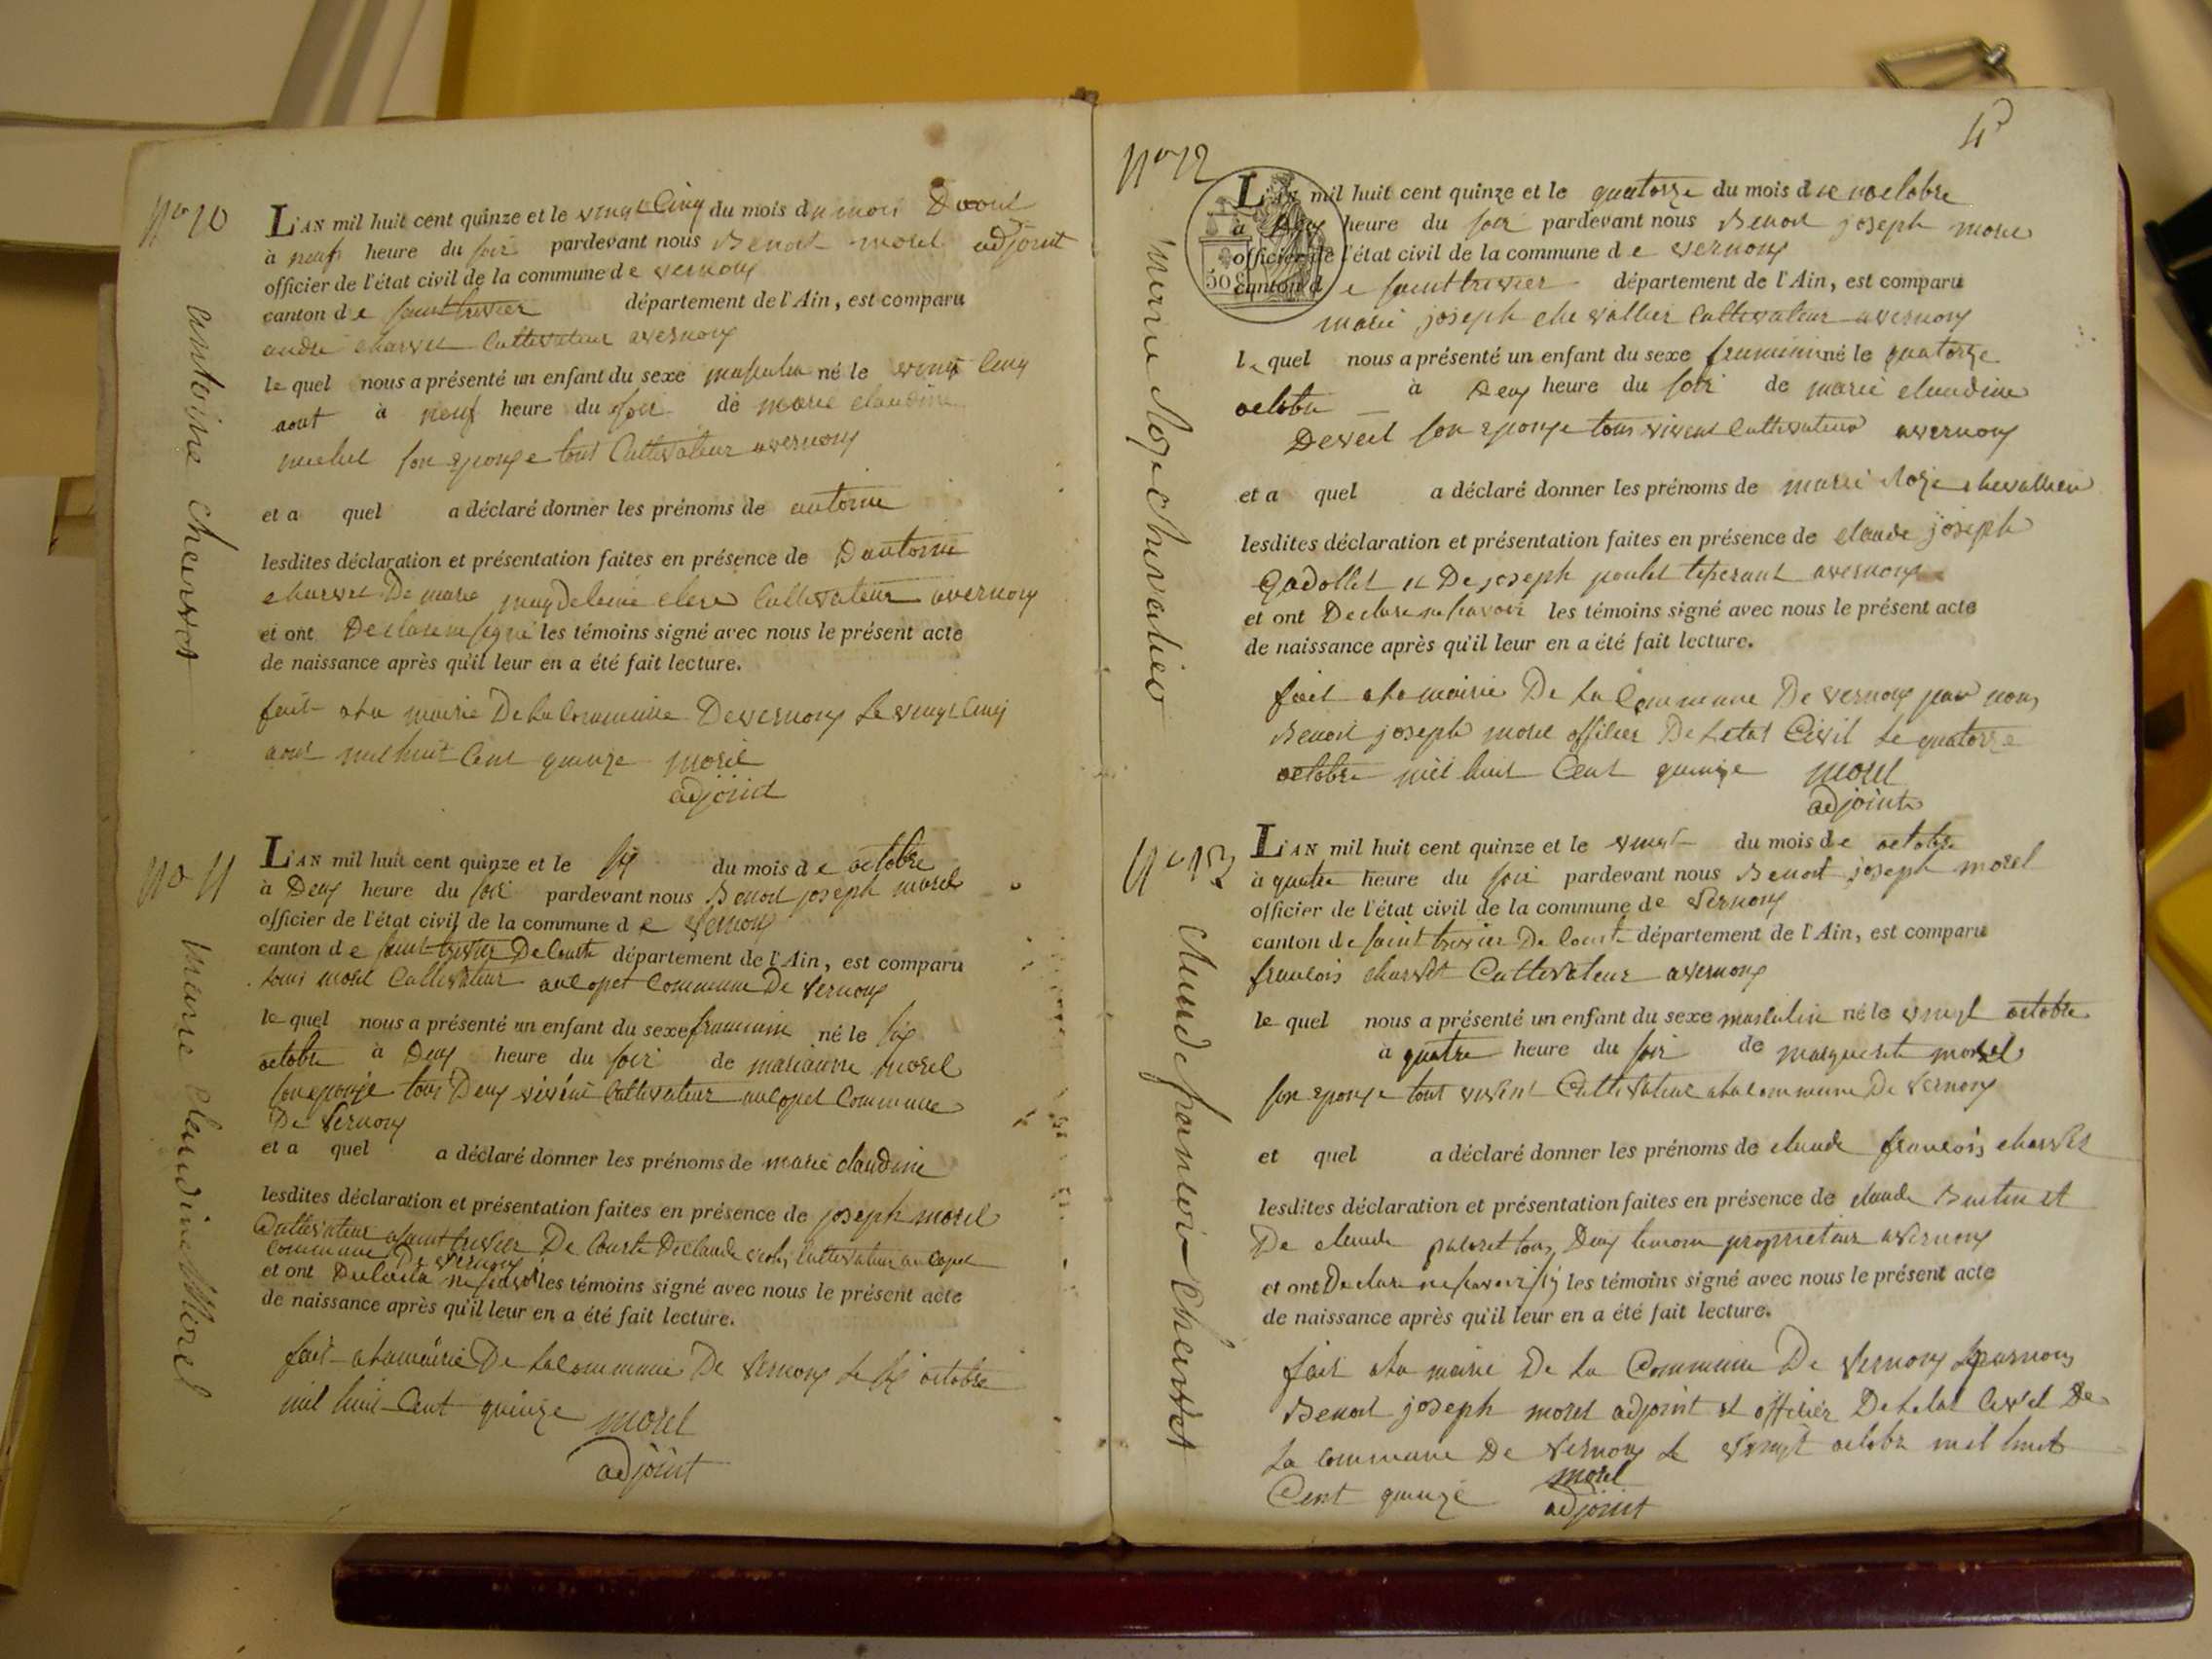 N° 10
antoine Charvet
L'AN mil huit cent quinze et le vingt Cinq du mois du mois Daout
à neuf heure du soir pardevant nous Benoit morel adjoint
officier de l'état civil de la commune de vernoux
canton de saint trivier département de l'Ain, est comparu
andré charvet Cultivateur avernoux
le quel nous a présenté un enfant du sexe masculin né le vingt Cinq
aout à neuf heure du soir de marie claudine
michel son epouse tout Cultivateur avernoux
et a quel a déclaré donner les prénoms de antoine
lesdites déclaration et présentation faites en présence de Dantoine
charvet De marie magdeleine clere Cultivateur avernoux
et ont Declare ne signé les témoins signé avec nous le présent acte
de naissance après qu'il leur en a été fait lecture.
fait ala mairie De la Commune Devernoux Le vingt Cinq
aout mil huit Cent quinze morel
adjoint
N° 11
marie Claudine Morel
L'AN mil huit cent quinze et le six du mois de octobre
à Deux heure du soir pardevant nous Benoit joseph morel
officier de l'état civil de la commune de Vernoux
canton de saint trivier De Courte département de l'Ain, est comparu
morel Cultivateur au Copet Commune De Vernoux
le quel nous a présenté un enfant du sexe feminin né le six
octobre à Deux heure du soir de marianne morel
son epouse tous Deux vivent Cultivateur au Copet Commune
De Vernoux
et a quel a déclaré donner les prénoms de marie claudine
lesdites déclaration et présentation faites en présence de joseph morel
Cultivateur asaint trivier De Courte De claude Cultivateur au Copet
commune De Vernoux
et ont les témoins signé avec nous le présent acte
de naissance après qu'il leur en a été fait lecture.
fait ala mairie De la Commune De Vernoux Le six octobre
mil huit Cent quinze morel
adjoint
4
N° 12
50
marie Roze Chevalier
L'AN mil huit cent quinze et le quatorze du mois de octobre
à Deux heure du soir pardevant nous Benoit joseph morel
officier de l'état civil de la commune de vernoux
canton de saint trivier département de l'Ain, est comparu
marie joseph chevallier Cultivateur avernoux
le quel nous a présenté un enfant du sexe feminin né le quatorze
octobre à Deux heure du soir de marie claudine
son epouse tous vivent Cultivateur avernoux
et a quel a déclaré donner les prénoms de marie Roze chevallier
lesdites déclaration et présentation faites en présence de claude joseph
Gadollet et De joseph poulet tisserant avernoux
et ont Declare ne savoir les témoins signé avec nous le présent acte
de naissance après qu'il leur en a été fait lecture.
fait ala mairie De La Commune De vernoux par nous
Benoit joseph morel officier De Letat Civil Le quatorze
octobre mil huit Cent quinze morel
adjoint
N° 13
claude francois Charvet
L'AN mil huit cent quinze et le vingt du mois de octobre
à quatre heure du soir pardevant nous Benoit joseph morel
officier de l'état civil de la commune de Vernoux
canton de saint trivier De Courte département de l'Ain, est comparu
francois charvet Cultivateur avernoux
le quel nous a présenté un enfant du sexe masculin né le vingt octobre
à quatre heure du soir de marguerite morel
son epouse tout vivent Cultivateur ala commune De Vernoux
et quel a déclaré donner les prénoms de claude francois charvet
lesdites déclaration et présentation faites en présence de claude et
De claude tous Deux temoin proprietair avernoux
et ont Declare ne savoir les témoins signé avec nous le présent acte
de naissance après qu'il leur en a été fait lecture.
fait ala mairie De La Commune De Vernoux par nous
Benoit joseph morel adjoint et officier De Letat Civil De
La commune De Vernoux Le vingt octobre mil huit
Cent quinze morel
adjoint